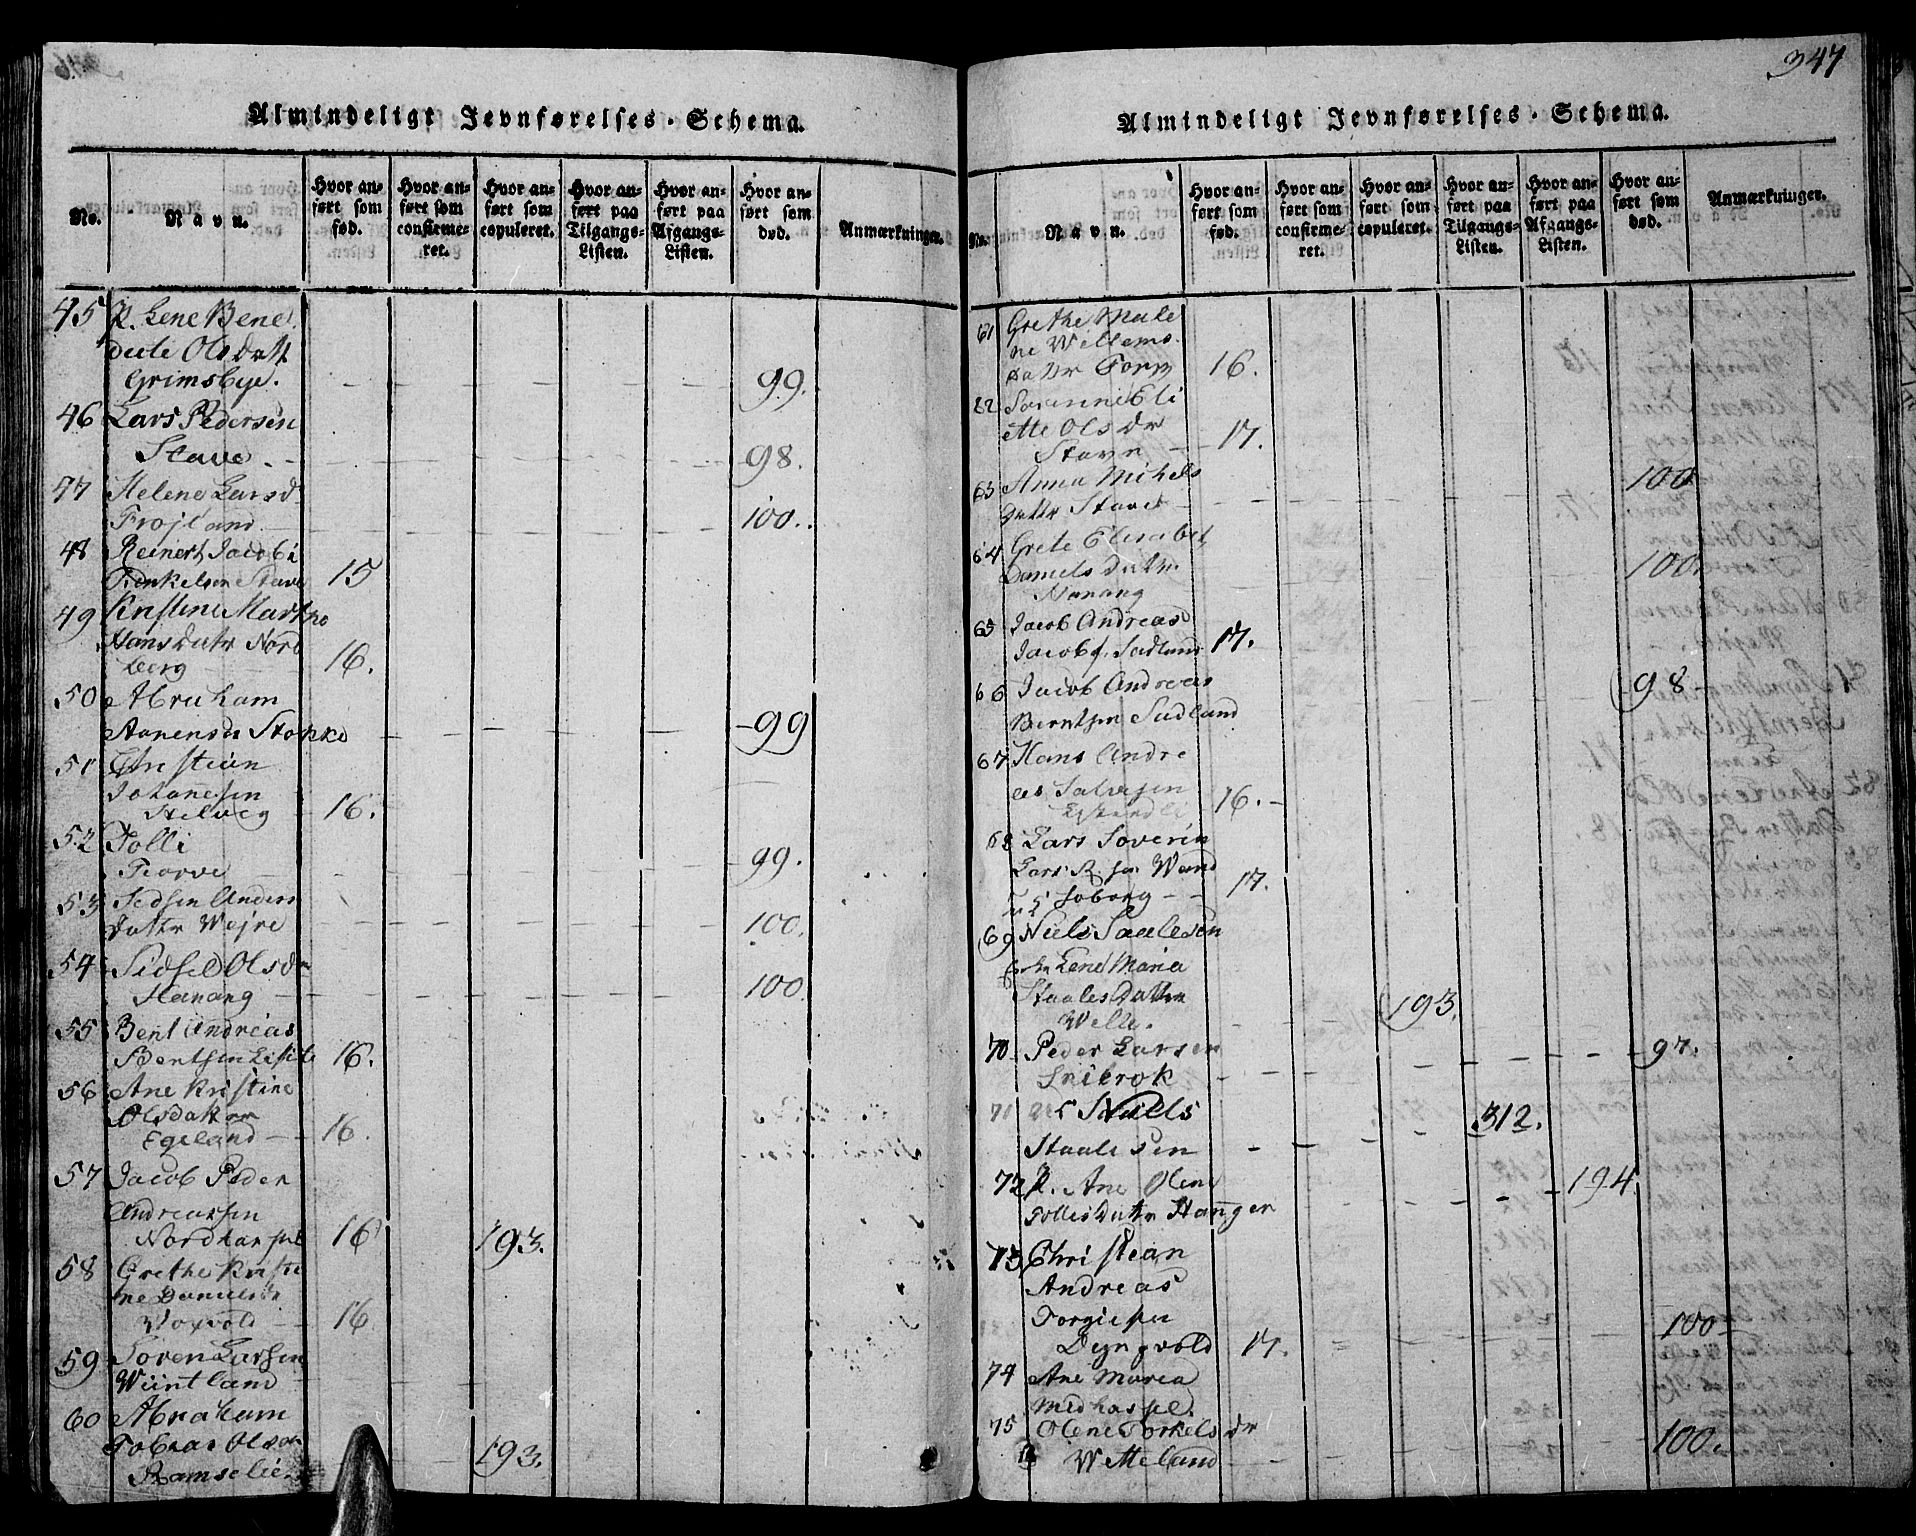 Almindeligt Jevnførelses-Schema.
No.
Navn.
Hvor anført som fød.
Hvor anført som confirmeret.
Hvor anført som copuleret.
Hvor anført paa Tilgangs-Listen.
Hvor anført paa Afgangs-Listen.
Hvor anført som død.
Anmærkninger.
45 P. Lene Bene
dicte Olsdatt
Grimsbye. 99.
46 Lars Pedersen
Stave. 98.
47 Helene Larsd
Frøjland 100.
48 Reinert Jacobi
Stave 15
49 Kristine Martha
Hansdatr Nord
berg 16.
50 Abraham
Aanensen Stokke 99
51 Christian
Johanesen
Helveg 16.
52 Tolli
Fiorve 99.
53 Sidsen Anders
Dattr Wejre 100.
54 Sidsel Olsdr
Hanang 100.
55 Bent Andreas
Bentsen 16.
56 Ane Kristine
Olsdatter
Egeland 16.
57 Jacob Peder
Andreassen
Nordhassel 16 193.
58 Grethe Kristi
ne Danielsdr
Woxvold 16
59 Soren Larsen
Wiintland
60 Abraham
Tobias Olsen
Ramslie 193.
347
Almindeligt Jevnførelses-Schema.
No.
Navn.
Hvor anført som fød.
Hvor anført som confirmeret.
Hvor anført som copuleret.
Hvor anført paa Tilgangs-Listen.
Hvor anført paa Afgangs-Listen.
Hvor anført som død.
Anmærkninger.
61 Grethe Male
ne Willems
datr 16.
62 Sorinne Eli
ette Olsdr
Stave 17.
63 Anna Mikels
Dattr Stave 100
64 Grete Elisabet
Daniels datr.
Hanang 100
65 Jacob Andreas
Jacobs. Sadland 17.
66 Jacob Andreas
Berntsen Sadland 98
67 Hans Andre
as Salvesen
16.
68 Lars Soverin
Lars
Soborg 17.
69 Niels Saalesen
Lene Maria
Staales Datter
Welle. 193.
70 Peder Larsen
Snibrok 97.
71 Niels
Staalesen 312.
72 P. Ane Olene
Tollesdatr Hanger 194
73 Christian
Andreas
Torgiesen
Dyngvold 17. 100
74 Ane Maria
Midhassel.
75 Olene Torkelsdr
Wetteland 100.